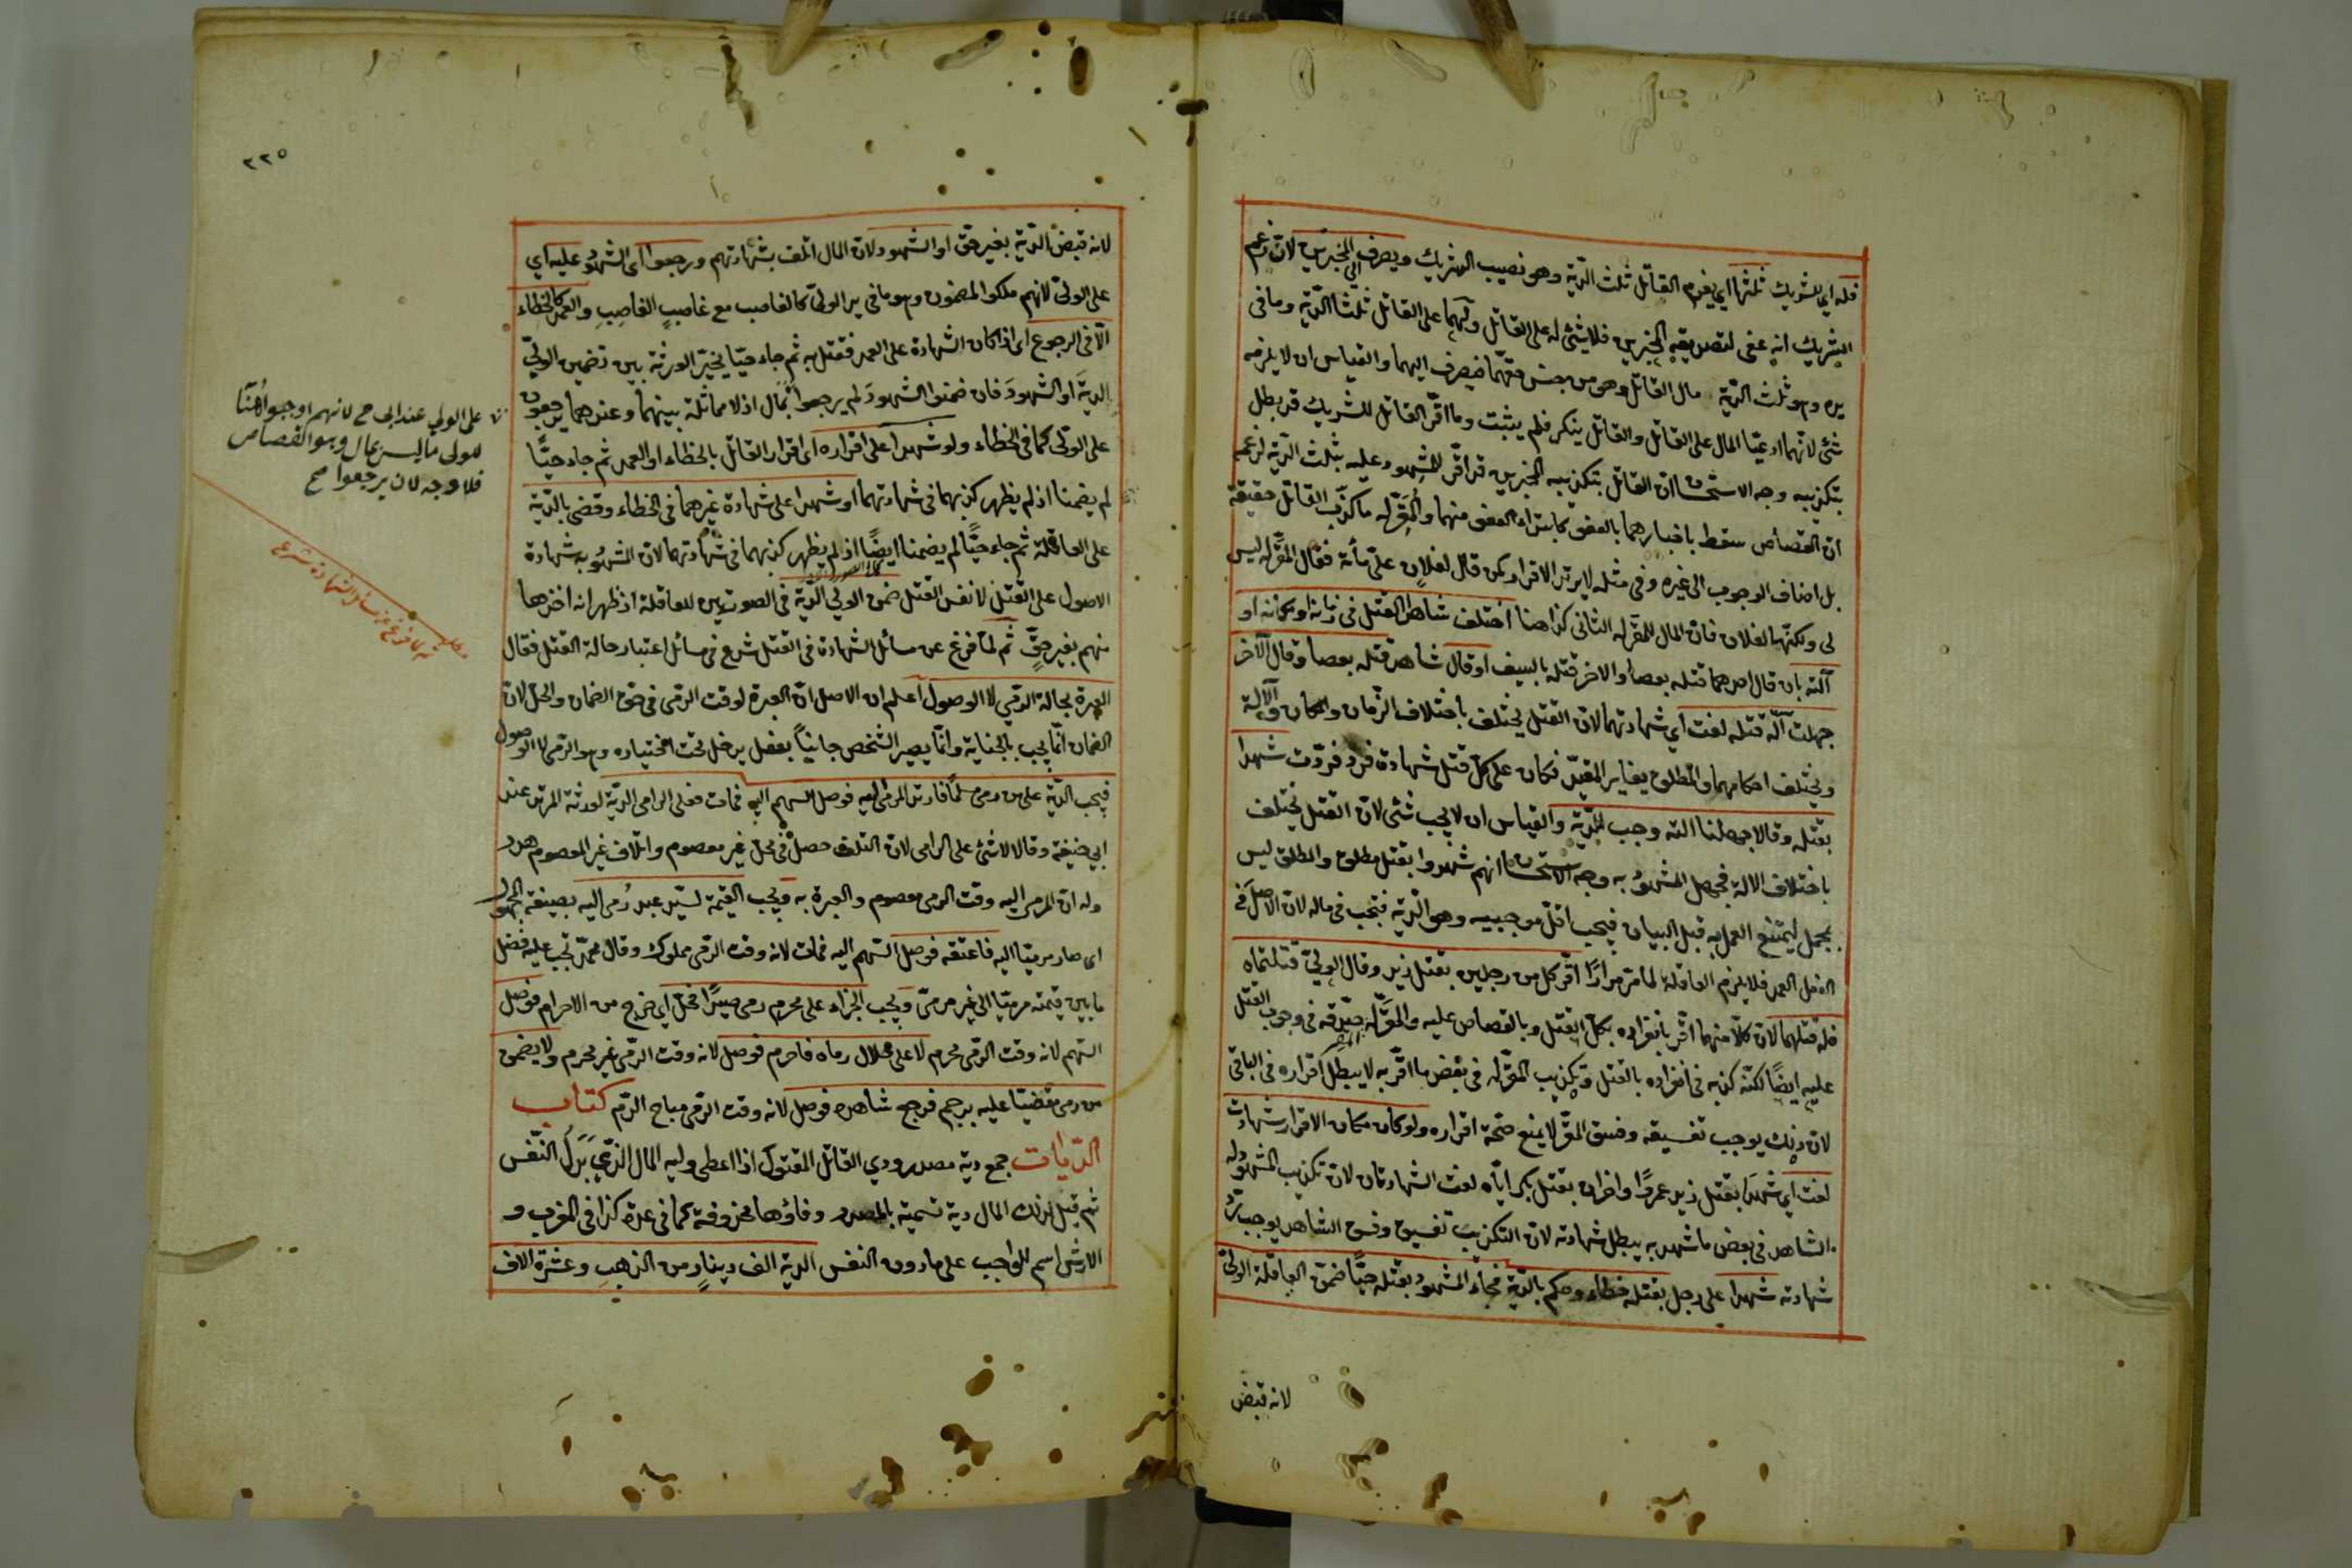 فله اي للشريك ثلثها اي يغرم القاتل ثلث الدّية وهو نصيب الشريك ويصرف الى المخبرين لان زعم
الشريك انه عفى لتصديقه المخبرين فلا شئ له على القاتل ولهما على القاتل ثلثا الدّية وما في
يده وهو ثلث الدّية مال القاتل وهو من جنس حقهما فيصرف اليهما والقياس ان لا يلزمه
شئ لانهما ادعيا المال على القاتل والقاتل ينكر فلم يثبت وما اقرّ القاتل للشريك قد بطل
بتكذيبه وجه الاستحسان ان القاتل بتكذيبه المخبرين قد اقرّ للمشهود عليه بثلث الدّية لزعمه
انّ القصاص سقط باخبارهما بالعفو كابتداء العفو منهما والمُقَرّ له ما كذّب القاتل حقيقة
بل اضاف الوجوب الى غيره وفي مثله لا يرتد الاقرار كمن قال لفلان علىّ مأة فقال المقرّ له ليس
لى ولكنّها لفلان فانّ المال للمقرّ له الثانى كذا هنا اختلف شاهدا القتل في زمانه او مكانه او
آلته بان قال احدهما قتله بعصا والاخر قتله بالسيف او قال شاهد قتله بعصا وقال الآخر
جهلت آلة قتله لغت اي شهادتهما لان القتل يختلف باختلاف الزمان والمكان والآلة
ويختلف احكامهما والمطلق يغاير المقيّد فكان على كلّ قتل شهادة فرد فردّت شهدا
بقتله وقالا جهلنا الته وجب الدّية والقياس ان لا يجب شئ لانّ القتل يختلف
باختلاف الالة فجهل المشهود به وجه الاستحسان انهم شهدوا بقتل مطلق والمطلق ليس
بمجمل ليمتنع العمل به قبل البيان فيجب اقلّ موجبيه وهو الدّية فتجب في ماله لان الاصل في
الفعل العمد فلا يلزم العاقلة لما مرّ مرارًا اقرّ كل من رجلين بقتل زيد وقال الولىّ قتلتماه
فله قتلهما لان كلاّ منهما اقرّ بانفراده بكلّ القتل وبالقصاص عليه والمقرّ له صدّقه فى وجوب القتل
عليه ايضًا لكنّه كذبه في انفراده بالقتل وتكذيب المقرّ له المقر في بعض ما اقرّ به لا يبطل اقراره في الباقى
لان ذلك يوجب تفسيقه وفسق المقرّ لا يمنع صحّة اقراره ولو كان مكان الاقرار شهادة
لغت اي شهدا بقتل زيد عمرًا واخران بقتل بكر ايّاه لغت الشهادتان لان تكذيب المشهود له
الشاهد في بعض ما شهد به يبطل شهادته لان التكذيب تفسيق وفسق الشاهد يوجب ردّ
شهادته شهدا على رجل بقتله خطاء وحكم بالدّية فجاء المشهود بقتله حيًّا ضمن العاقلة الولىّ
لانه قبض
٢٢٥
لانه قبض الدّية بغير حق او الشهود لان المال اتلف بشهادتهم ورجعوا اى الشهود عليه اي
على الولىّ لانهم ملكوا المضمون وهو ما في يد الولىّ كالغاصب مع غاصب الغاصب والعمد كالخطاء
الاّ في الرجوع اى اذا كان الشهادة على العمد فقتل به ثم جاء حيّا يخيّر الورثة بين تضمين الولىّ
الدية او الشهود فان ضمنوا الشهودَ لم يرجعوا بمال اذ لا مماثلة بينهما وعندهما يرجعون
على الولى كما في الخطاء ولو شهدا على اقراره اى اقرار القاتل بالخطاء او العمد ثم جاء حيًّا
لم يضمنا اذ لم يظهر كذبهما في شهادتهما او شهدا على شهادة غيرهما في الخطاء وقضى بالدّية
على العاقلة ثم جاء حيًّا لم يضمنا ايضًا اذ لم يظهر كذبهما في شهادتهما لان المشهود به شهادة
الاصول على القتل لا نفس القتل ضمن الولي الدّية في الصورتين للعاقلة اذ ظهر انه اخذها
منهم بغير حقّ ثم لمّا فرغ عن مسائل الشهادة في القتل شرع في مسائل اعتبار حالة القتل فقال
العبرة بحالة الرّمي لا الوصول اعلم ان الاصل انّ العبرة لوقت الرّمى في حق الضمان والحلّ لان
الضمان انّما يجب بالجناية وانّما يصير الشخص جانيًا بفعل يدخل تحت اختياره وهو الرّمى لا الوصول
فيجب الدّية على من رمى مسلمًا فارتد المرمىّ اليه فوصل السهم اليه فمات فعلى الرامى الدّية لورثة المرتد عند
ابي حنيفة وقالا لا شئ على الرامى لان التلف حصل فى محلّ غير معصوم واتلاف غير المعصوم هدر
وله انّ المرمى اليه وقت الرمى معصوم والعبرة به ويجب القيمة لسيّد عبد رُمى اليه بصيغة المجهول
اى صار مرميّا اليه فاعتقه فوصل السّهم اليه فمات لانه وقت الرّمى مملوك وقال محمّد تجب عليه فضل
ما بين قيمته مرميّا الى غير مرمىّ ويجب الجزاء على محرم رمى صيدًا فحلّ اي خرج من الاحرام فوصل
السّهم لانه وقت الرّمى محرم لا على حلال رماه فاحرم فوصل لانه وقت الرّمى غير محرم ولا يضمن
من رمى مقضيّا عليه برجم فرجع شاهده فوصل لانه وقت الرّمى مباح الدّم كتاب
الدّيات جمع دية مصدر ودي القاتل المقتول اذا اعطى وليه المال الذّي بَدَلُ النّفس
ثم قيل لذلك المال دية تسمية بالمصدر وفاؤها محذوفة كما في عدة كذا في المغرب و
الارش اسم للواجب على ما دون النفس الدية الف دينار من الذهب وعشرة الاف
على الولي عند ابى ح لانهم اوجبوا هُنَا
للولى ما ليس بمال وهو القصاص
فلا وجه لان يرجعوا صح